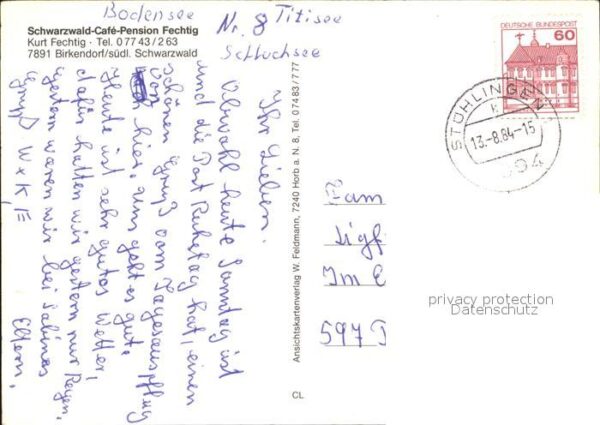 Bodensee
Nr. 8 Titisee
Schluchsee
Schwarzwald-Café-Pension Fechtig
Kurt Fechtig · Tel. 07743/263
7891 Birkendorf/südl. Schwarzwald
Ihr Lieben.
Obwohl heute Sonntag ist
und die Post Ruhetag hat, einen
schönen Gruß vom Tagesausflug
von hier, uns geht es gut.
Heute ist sehr gutes Wetter,
dafür hatten wir gestern nur Regen.
gestern waren wir bei Sabines
Eltern.
Gruß W + K, E
Ansichtskartenverlag W. Feldmann, 7240 Horb a. N. 8, Tel. 07483/777
CL
DEUTSCHE BUNDESPOST
60
STÜHLINGEN
13.-8.84-15
894
Fam
Sigf
Im E
597
privacy protection
Datenschutz